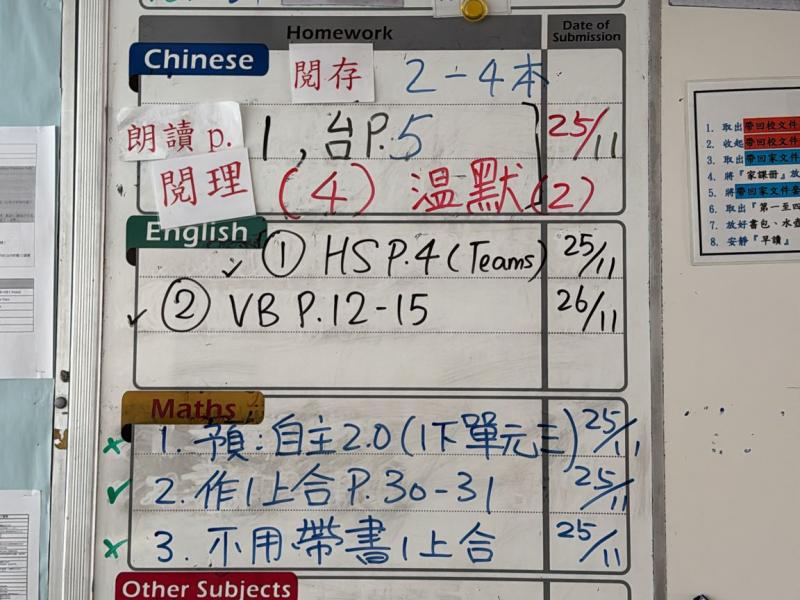 Homework
Date of Submission
Chinese
閱存 2-4本
朗讀 p. 1, 台P.5 25/11
閱理 (4) 溫默(2)
English
① HS P.4 (Teams) 25/11
② VB P.12-15 26/11
Maths
1. 預:自主2.0(1下單元三) 25/11
2. 作1上合 P.30-31 25/11
3. 不用帶書1上合 25/11
Other Subjects
1. 取出帶回校文件
2. 收起帶回校文件
3. 取出帶回家文件
4. 將『家課冊』放
5. 將帶回家文件套
6. 取出『第一至四
7. 放好書包、水壺
8. 安靜『早讀』